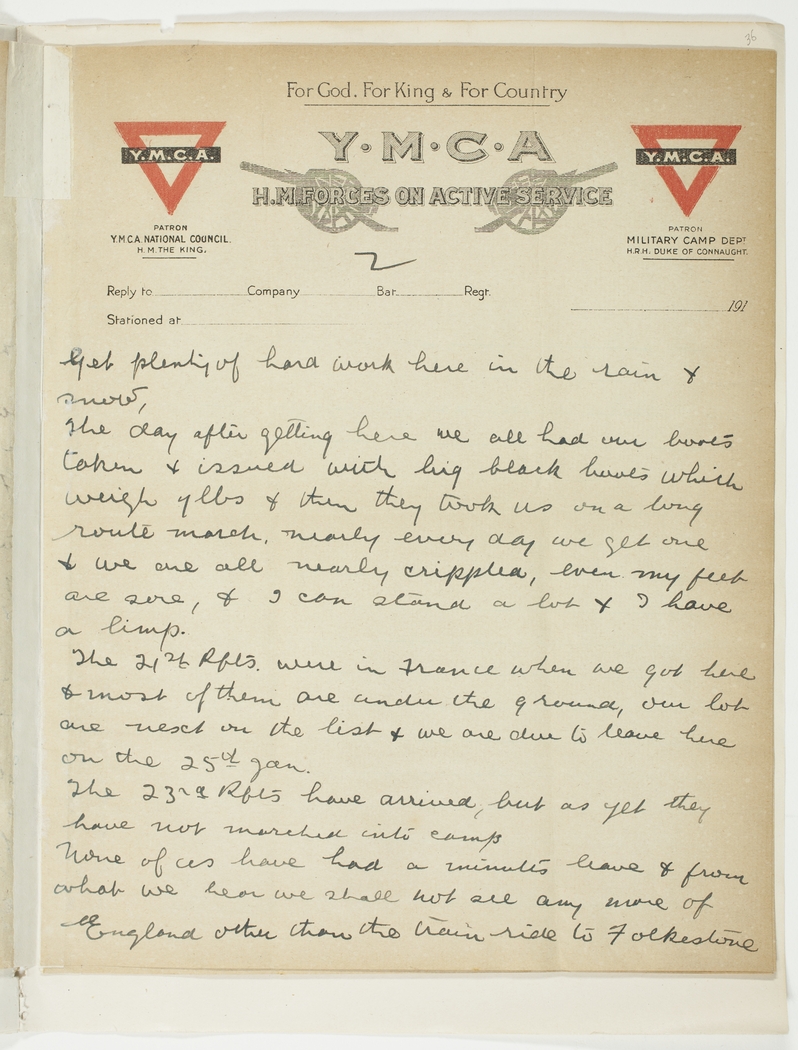 36
For God, For King & For Country
Y·M·C·A
H.M. FORCES ON ACTIVE SERVICE
Y.M.C.A.
PATRON
Y.M.C.A. NATIONAL COUNCIL.
H.M. THE KING.
Y.M.C.A.
PATRON
MILITARY CAMP DEPT
H.R.H. DUKE OF CONNAUGHT.
2
Reply to Company Bat. Regt.
191
Stationed at
get plenty of hard work here in the rain &
snow,
The day after getting here we all had our boots
taken & issued with big black boots which
weigh 9 lbs & then they took us on a long
route march, nearly every day we get one
& we are all nearly crippled, even my feet
are sore, & I can stand a lot & I have
a limp.
The 21st Rfts. were in France when we got here
& most of them are under the ground, our lot
are next on the list & we are due to leave here
on the 25th Jan.
The 23rd Rfts have arrived, but as yet they
have not marched into camp
None of us have had a minutes leave & from
what we hear we shall not see any more of
England other than the train ride to Folkestone